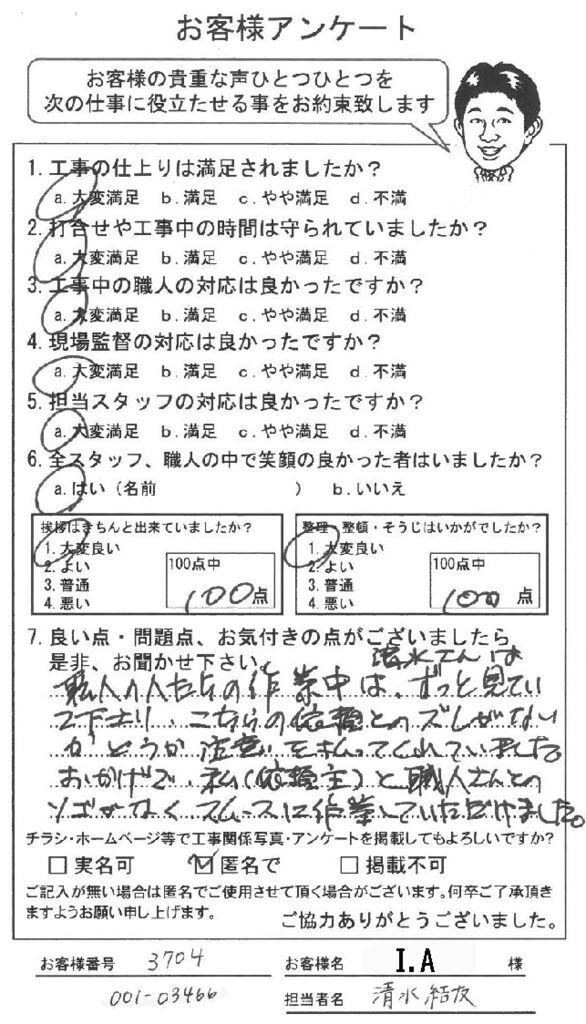 お客様アンケート
お客様の貴重な声ひとつひとつを
次の仕事に役立たせる事をお約束致します
1. 工事の仕上りは満足されましたか？
a. 大変満足 b. 満足 c. やや満足 d. 不満
2. 打合せや工事中の時間は守られていましたか？
a. 大変満足 b. 満足 c. やや満足 d. 不満
3. 工事中の職人の対応は良かったですか？
a. 大変満足 b. 満足 c. やや満足 d. 不満
4. 現場監督の対応は良かったですか？
a. 大変満足 b. 満足 c. やや満足 d. 不満
5. 担当スタッフの対応は良かったですか？
a. 大変満足 b. 満足 c. やや満足 d. 不満
6. 全スタッフ、職人の中で笑顔の良かった者はいましたか？
a. はい（名前 ） b. いいえ
挨拶はきちんと出来ていましたか？
1. 大変良い
2. よい
3. 普通
4. 悪い
100点中
100点
整理・整頓・そうじはいかがでしたか？
1. 大変良い
2. よい
3. 普通
4. 悪い
100点中
100点
7. 良い点・問題点、お気付きの点がございましたら
是非、お聞かせ下さい。
清水さんは
職人の人たちの作業中は、ずっと見てい
て下さり、こちらの依頼とのズレがない
かどうか注意を払ってくれていました。
おかげで、私（依頼主）と職人さんとの
ソゴがなくスムースに作業していただけました。
チラシ・ホームページ等で工事関係写真・アンケートを掲載してもよろしいですか？
実名可 匿名で 掲載不可
ご記入が無い場合は匿名でご使用させて頂く場合がございます。何卒ご了承頂き
ますようお願い申し上げます。
ご協力ありがとうございました。
お客様番号 3704
001-03466
お客様名 I.A 様
担当者名 清水 結友